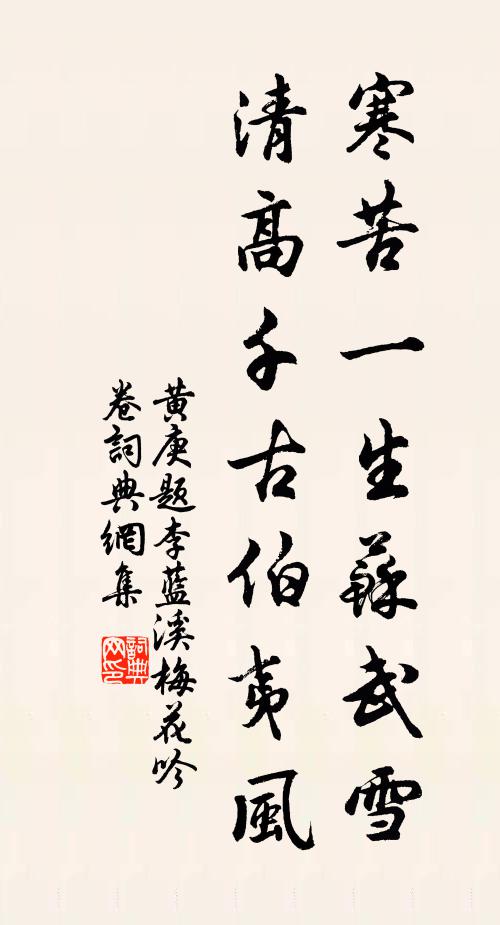 寒苦一生蘇武雪
清高千古伯夷風
黄庚題李藍溪梅花吟
卷詞典網集
詞典
网印